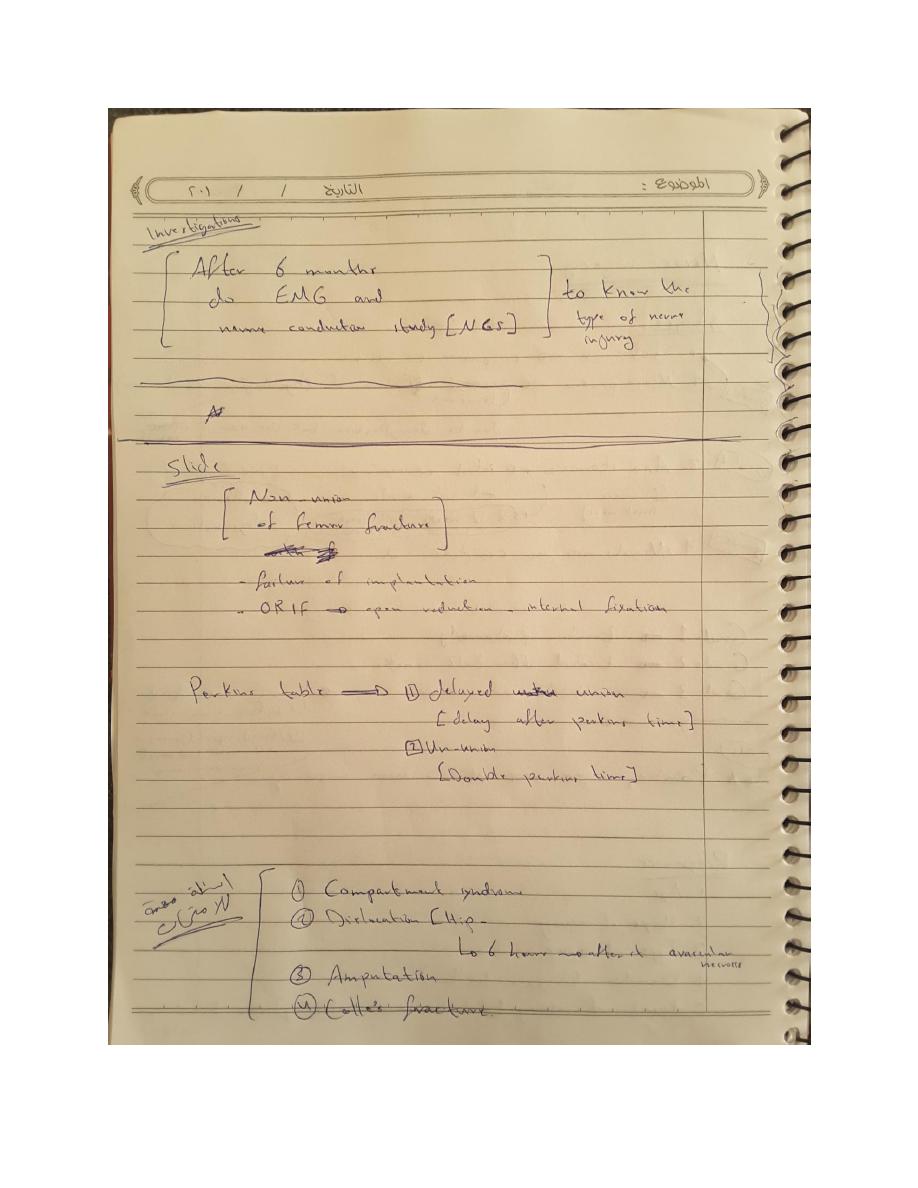 الموضوع :
التاريخ / / ٢٠١
Investigations
After 6 months
do EMG and
nerve conductor study [NCS]
to know the
type of nerve
injury
Slide
Non-union
of femur fracture
- failure of implantation
- ORIF → open reduction - internal fixation
Perkins table ⇒ 1 delayed union
[delay after perkins time]
2 Un-union
[Double perkins time]
اسئلة مهمة
للامتحان
1 Compartment syndrome
2 Dislocation [Hip -
to 6 hours → after it avascular
necrosis
3 Amputation
4 Colle's fracture.